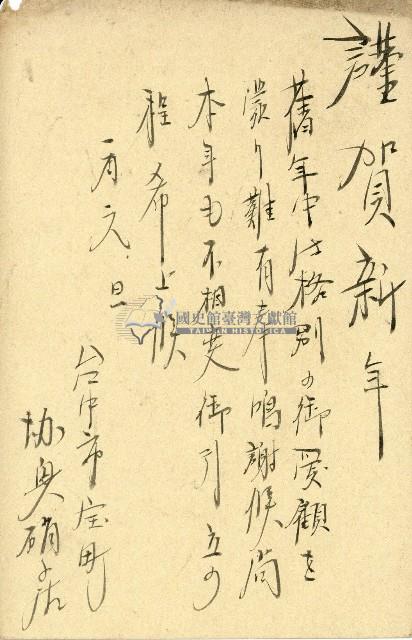 謹賀新年
舊年中は格別の御愛顧を
蒙り難有奉鳴謝候尚
本年も不相変御引立の
程希上候
一月元旦
台中市宝町
協興硝子店
國史館臺灣文獻館
TAIWAN HISTORICA